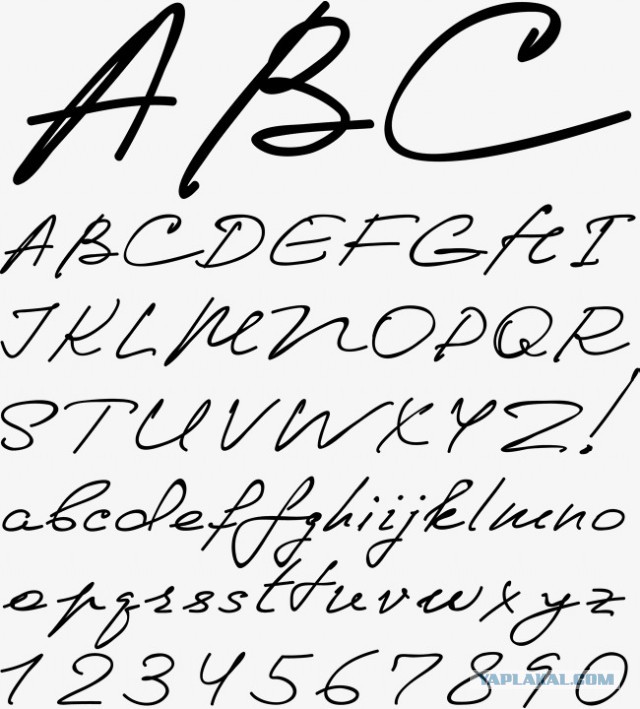 ABC
ABCDEFGHI
JKLMNOPQR
STUVWXYZ!
abcdeffghiijklmno
opqrsssttuvwxyz
1234567890
YAPLAKAL.COM